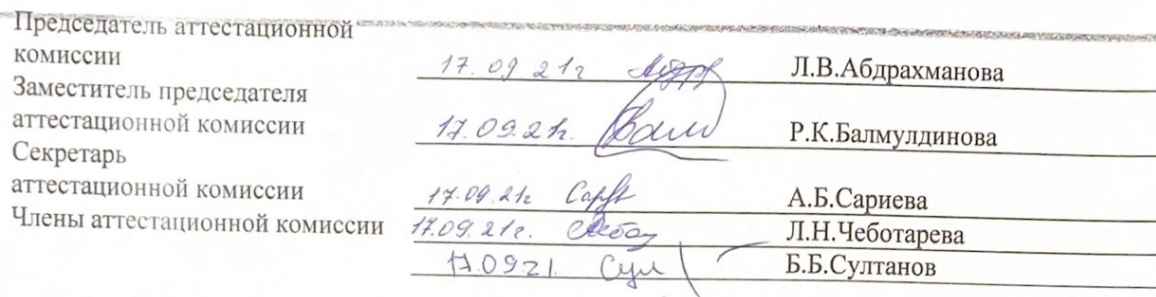 Председатель аттестационной
комиссии 17.09 21г Л.В.Абдрахманова
Заместитель председателя
аттестационной комиссии 17.09.21г. Р.К.Балмулдинова
Секретарь
аттестационной комиссии 17.09.21г А.Б.Сариева
Члены аттестационной комиссии 17.09.21г. Л.Н.Чеботарева
17.09.21. Сул Б.Б.Султанов